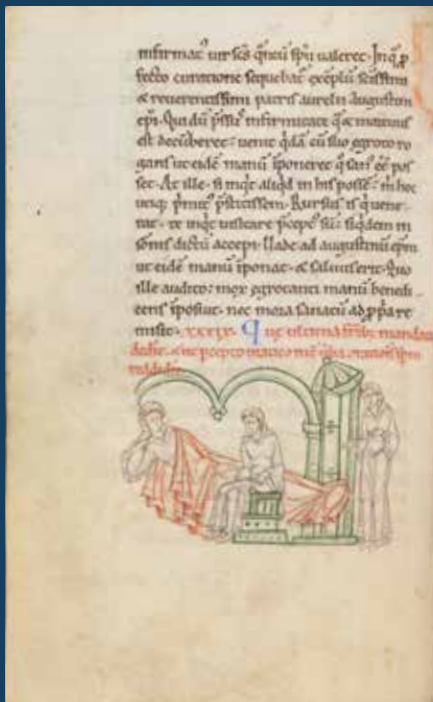 infirmat᷒ uir scs q̄ntū spū ualeret. In q̄ p
fecto curatione sequebat̄ exēplū scissimi
& reuerentissimi patris aurelii augustini
epi. Qui dū pssus infirmitate q̄ & mortuus
est decūberet: uenit q̄dā cū suo egroto ro
gans ut eidē manū īponeret q° san᷒ eē pos
set. At ille. si m inqt aliqd in his possē: m hoc
utiq; pmit᷒ pstitissem. Rursus is q uene
rat. te inqt uisitare pcept᷒ sū: siqdem in
somis dictū accepi. Uade ad augustinū epm
ut eidē manū īponat. & saluus erit. Quo
ille audito: mox egrotanti manū benedi
cens īposuit. nec mora sanatū ad ppa re
misit. xxxix. Que ultima frib; mandata
dederit. & ut pcepto uiatico
reddiderit